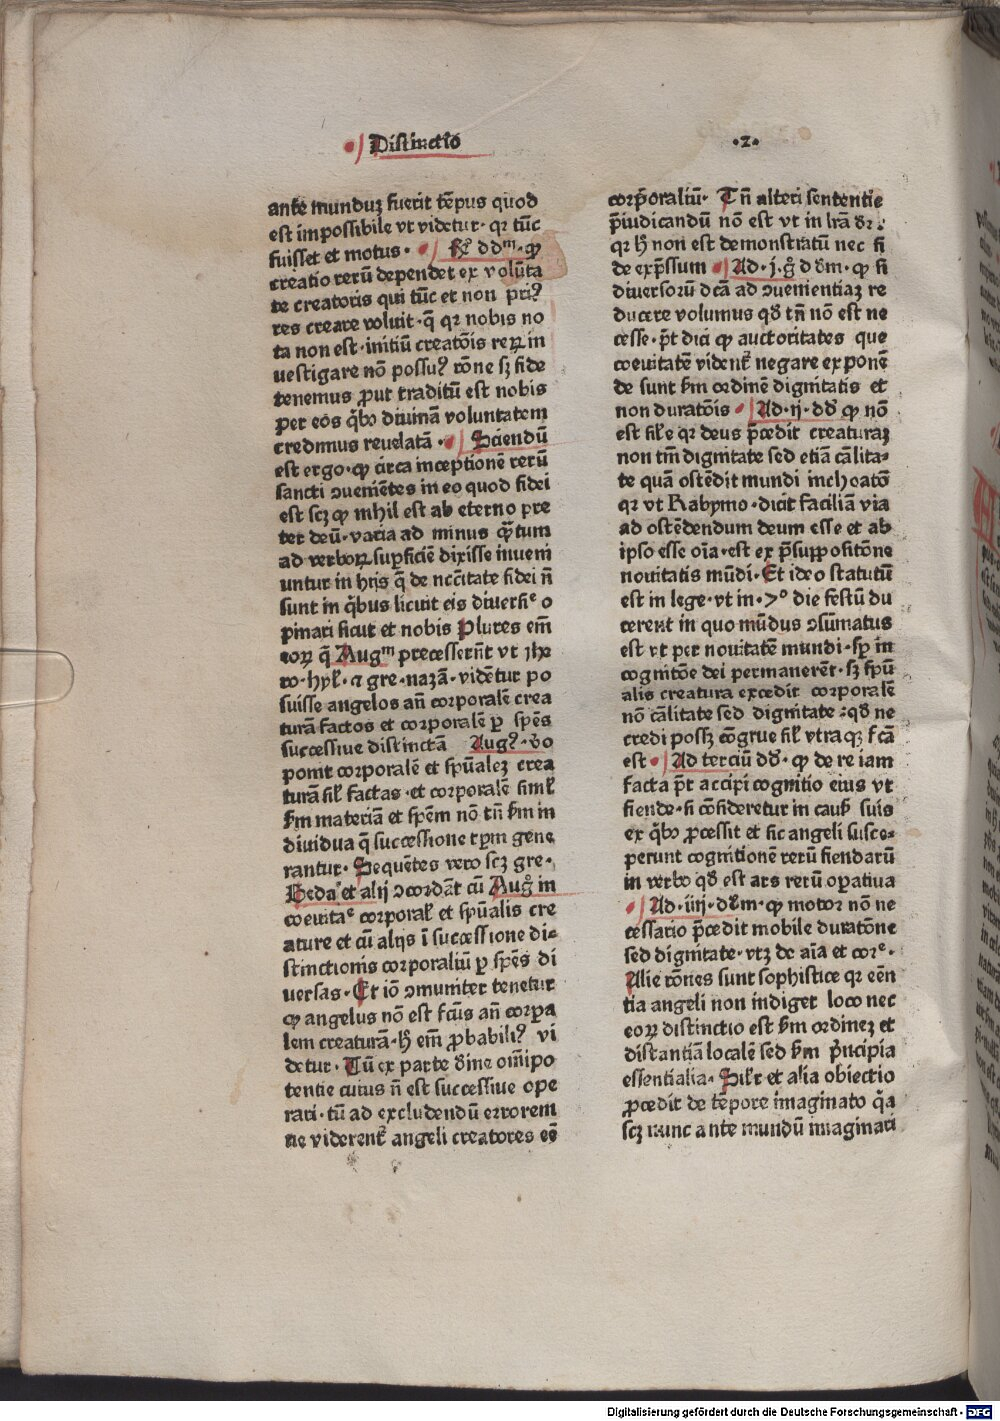 Distinctiō
·2·
ante munduꝫ fuerit tēpus quod
est impossibile vt videtur· qr tūc
fuisset et motus · ꝙ
creatio rerū dependet ex volūta
te creatoris qui tūc et non pri⁹
res creare voluit · q̄ qr nobis no
ta non est · initiū creatōis reꝝ in
uestigare nō possu⁹ rōne sꝫ fide
tenemus ꝓut traditū est nobis
per eos q̓bꝰ diuinā voluntatem
credimus reuelatā · Sciendū
est ergo · ꝙ circa inceptionē rerū
sancti ↄueniētes in eo quod fidei
est scꝫ ꝙ nihil est ab eterno pre
ter deū · varia ad minus q̄tum
ad verboꝝ suꝑficiē dixisse inueni
untur in hijs q̄ de nccītate fidei n̄
sunt in q̓bus licuit eis diuersiᵉ o
pinari sicut et nobis Plures em̄
eoꝝ q̄ Augᵐ precesserūt vt jhe
ro · hyl̓ · ⁊ gre · nazā · videntur po
suisse angelos an̄ corporalē crea
turā factos et corporalē ꝑ spēs
successiue distinctā Aug⁹ · v̓o
ponit corporalē et spūaleꝫ crea
turā sil̓ factas · et corporalē siml̓
ẜm materiā et spēm nō tn̄ ẜm in
diuidua q̄ successione tꝑm gene
rantur · Sequētes vero scꝫ gre ·
Beda et alij ↄcordāt cū Aug̊ in
coeuitaᵉ corporal̓ et spūalis cre
ature et cū alijs ī successione di⸗
stinctionis corporaliū ꝑ spēs di
uersas · Et iō ↄmuniter tenetur
ꝙ angelus nō est fc̄us an̄ corꝑa
lem creaturā · h̄ em̄ ꝓbabili⁹ vi
detur · Tū ex parte diuine om̄ipo
tentie cuius n̄ est successiue ope
rari · tū ad excludendū errorem
ne viderent̓ angeli creatores eē
corꝑaliū· Tn̄ alteri sententie
p̄iudicandū nō est vt in lr̄a dr̄ ·
qr h̄ non est demonstratū nec fi
de exp̄ssum Ad · j · g̊ dōm · ꝙ si
diuersorū dc̄a ad ↄuenientiaꝫ re
ducere volumus qd̄ tn̄ nō est ne
cesse · p̄t dici ꝙ auctoritates que
coeuitatē vident̓ negare exponē
de sunt ẜm ordinē dignitatis et
non duratōis Ad · ij · dd̄ ꝙ nō
est sil̓e qr deus p̄cedit creaturaꝫ
non tm̄ dignitate sed etiā cālita⸗
te quā ostēdit mundi inchoatō
qr vt Rabymo · dicit faciliā via
ad ostēdendum deum esse et ab
ipso esse oīa · est ex p̄suppositōne
nouitatis mūdi · Et ideo statutū
est in lege · vt in · 7° die festū du
cerent in quo mūdus ↄsūmatus
est vt per nouitatē mundi · sꝑ in
cognitōne dei permanerēt · sꝫ spū
alis creatura excedit corporalē
nō cālitate sed dignitate : qd̄ ne
credi possꝫ cōgrue sil̓ vtraqꝫ fcā
est · Ad terciū dd̄ · ꝙ de re iam
facta p̄t accipi cognitio eius vt
fiende · si cōsideretur in causꝭ suis
ex q̓bꝰ ꝓcessit et sic angeli susce⸗
perunt cognitionē rerū fiendarū
in verbo qd̄ est ars rerū oꝑatiua
Ad · iiij · dōm · ꝙ motor nō ne
cessario p̄cedit mobile duratōne
sed dignitate · vtꝫ de aīa et corᵉ ·
Alie rōnes sunt sophistice qr eēn
tia angeli non indiget loco nec
eoꝝ distinctio est ẜm ordineꝫ et
distantiā localē sed ẜm p̓ncipia
essentialia · Sil̓r et alia obiectio
ꝓcedit de tēpore imaginato q̓a
scꝫ nunc ante mundū imaginari
Digitalisierung gefördert durch die Deutsche Forschungsgemeinschaft - DFG